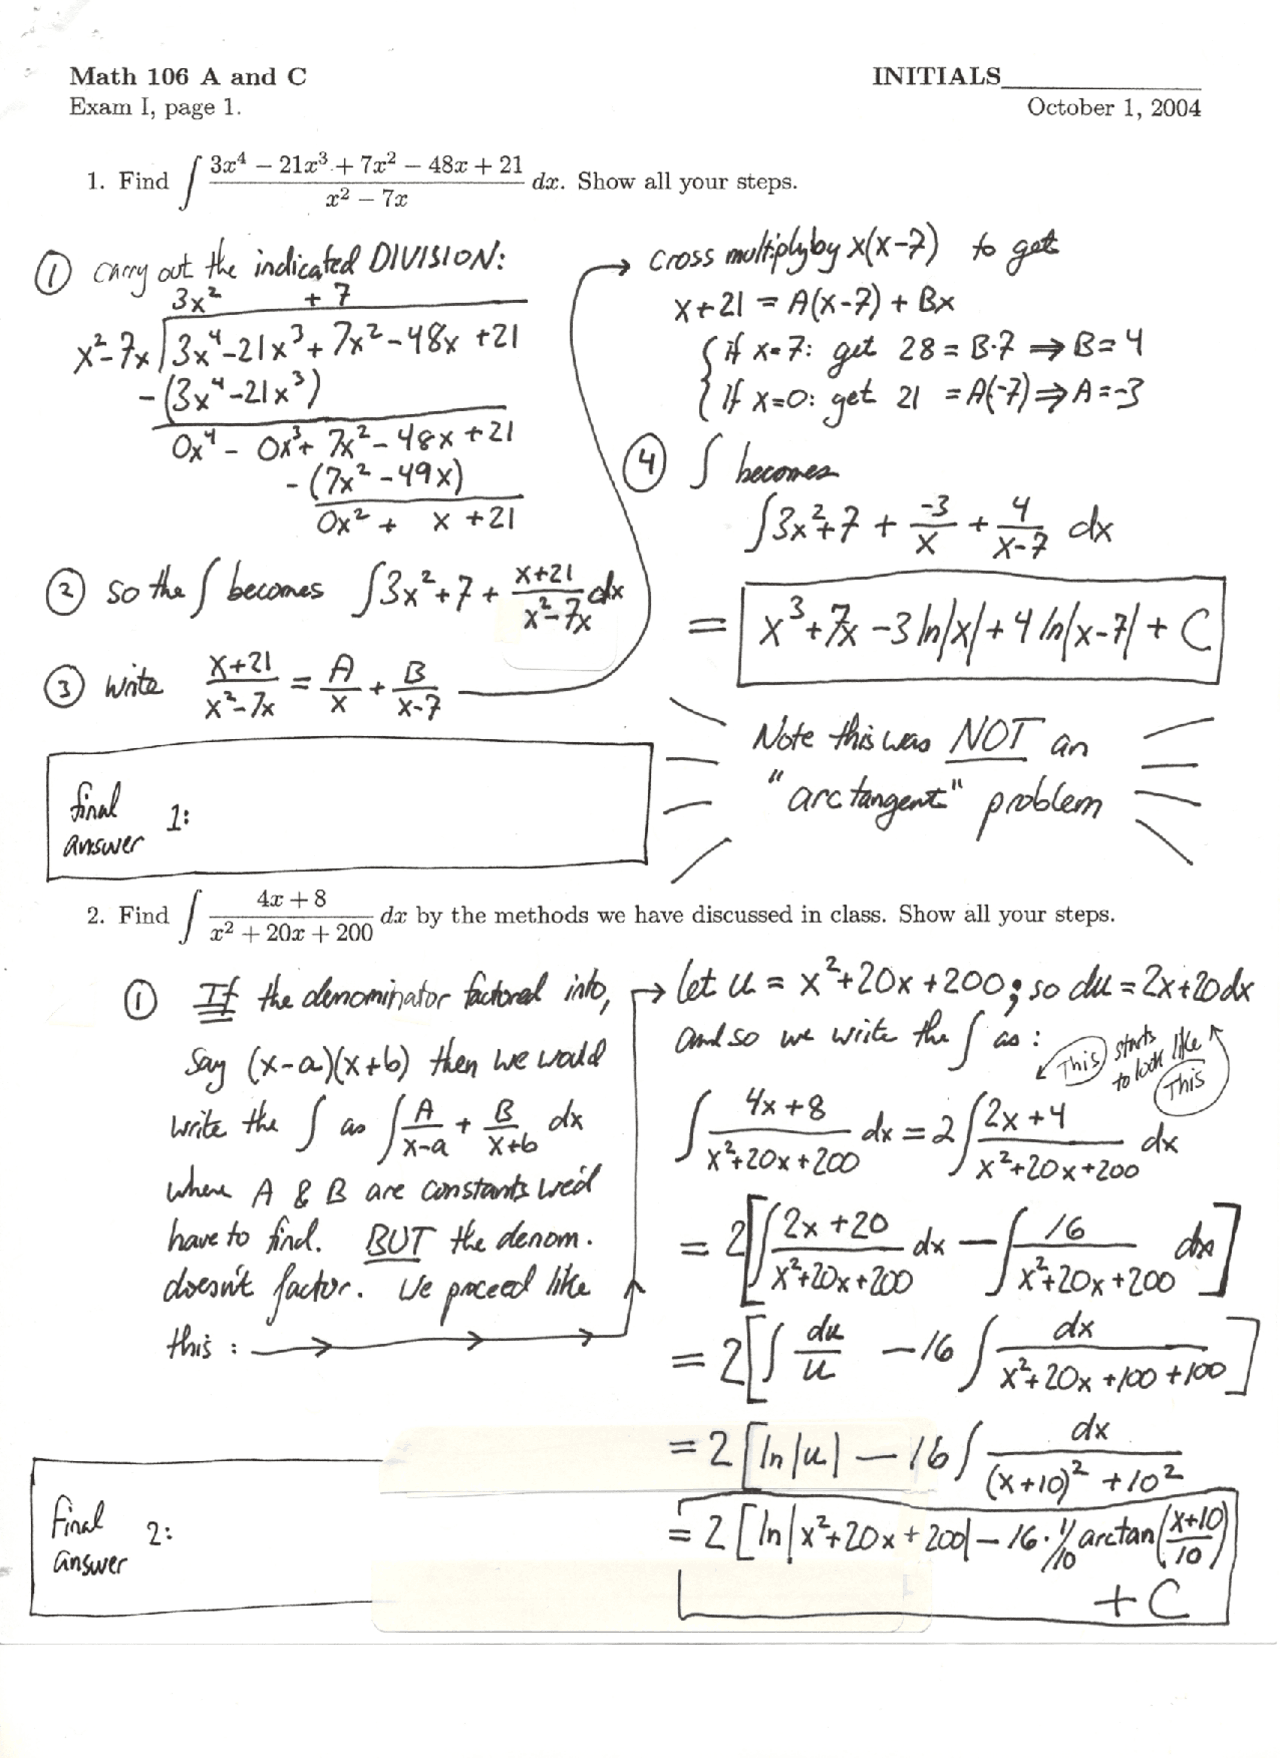 Math 106 A and C
INITIALS
Exam I, page 1.
October 1, 2004
1. Find ∫ (3x⁴ − 21x³ + 7x² − 48x + 21)/(x² − 7x) dx. Show all your steps.
① Carry out the indicated DIVISION:
3x² + 7
x²-7x 3x⁴-21x³+7x²-48x+21
-(3x⁴-21x³)
0x⁴ - 0x³+ 7x²-48x+21
-(7x²-49x)
0x² + x +21
② so the ∫ becomes ∫3x²+7+ (x+21)/(x²-7x) dx
③ Write (x+21)/(x²-7x) = A/x + B/(x-7)
→ cross multiply by x(x-7) to get
x+21 = A(x-7) + Bx
{ if x=7: get 28 = B·7 ⇒ B=4
{ If x=0: get 21 = A(-7) ⇒ A=-3
④ ∫ becomes
∫3x²+7 + -3/x + 4/(x-7) dx
= x³+7x -3 ln|x| + 4 ln|x-7| + C
Note this was NOT an
"arctangent" problem
final
answer 1:
2. Find ∫ (4x + 8)/(x² + 20x + 200) dx by the methods we have discussed in class. Show all your steps.
① If the denominator factored into,
say (x-a)(x+b) then we would
write the ∫ as ∫ A/(x-a) + B/(x+b) dx
where A & B are constants we'd
have to find. BUT the denom.
doesn't factor. We proceed like
this : →
→ let u = x²+20x+200; so du = 2x+20dx
and so we write the ∫ as :
This starts
to look like
This
∫ (4x+8)/(x²+20x+200) dx = 2∫ (2x+4)/(x²+20x+200) dx
= 2[∫ (2x+20)/(x²+20x+200) dx − ∫ 16/(x²+20x+200) dx]
= 2[∫ du/u −16 ∫ dx/(x²+20x+100+100)]
= 2[ln|u| − 16∫ dx/((x+10)²+10²)
= 2[ln|x²+20x+200| − 16·1/10 arctan((x+10)/10)
+ C
final
answer 2: